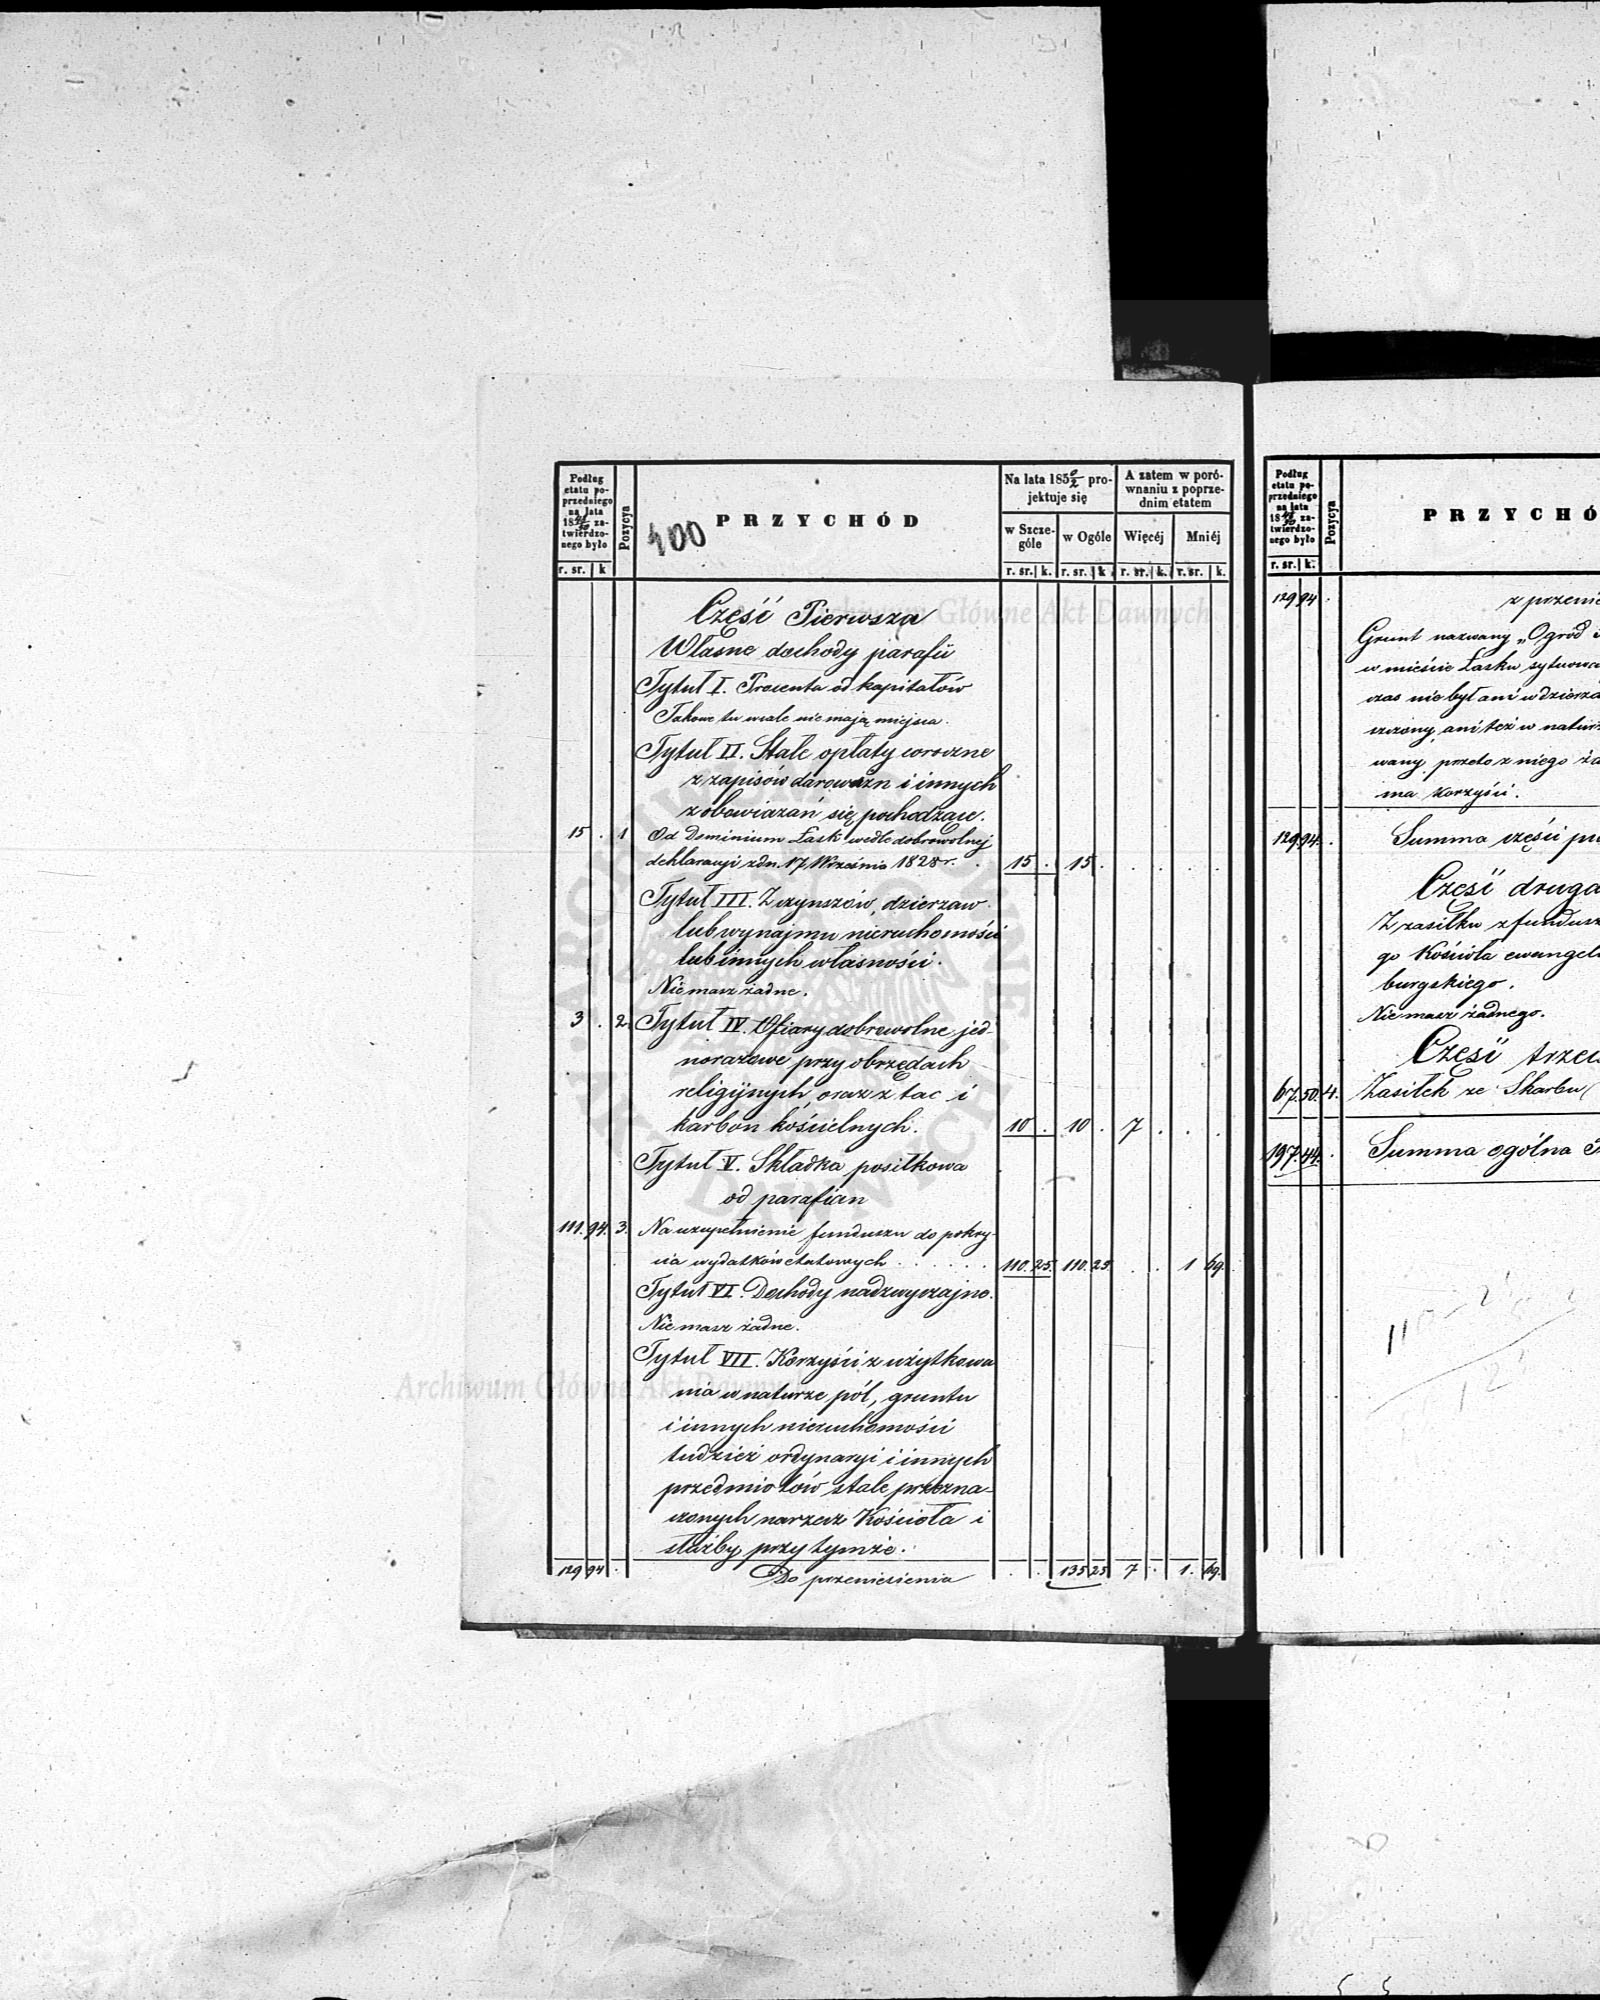 Podług
etatu po-
przedniego
na lata
18 za-
twierdzo-
nego było
r. sr. k
Pozycya
400
PRZYCHÓD
Na lata 185 0/2 pro-
jektuje się
w Szcze-
góle
w Ogóle
r. sr. k. r. sr. k.
A zatem w poró-
wnaniu z poprze-
dnim etatem
Więcéj Mniéj
r. sr. k. r. sr. k.
Część Pierwsza
Własne dochody parafii
Tytuł I. Procenta od kapitałów
Takowe tu wcale nie mają miejsca.
Tytuł II. Stałe opłaty coroczne
z zapisów darowizn i innych
zobowiązań się pochodzące.
15 . 1 Od Dominium Łask wedle dobrowolnej
deklaracyi z dn. 17 Września 1828 r. . 15 . 15 . . . . .
Tytuł III. Z czynszów, dzierzaw
lub wynajmu nieruchomości
lub innych własności.
Nie masz żadne.
3 . 2. Tytuł IV. Ofiary dobrowolne, jed-
norazowe przy obrzędach
religijnych, oraz z tac i
karbon kościelnych. 10 . 10 . 7 . . .
Tytuł V. Składka posiłkowa
od parafian
111. 94. 3. Na uzupełnienie funduszu do pokry-
cia wydatków etatowych . . . . . 110. 25. 110. 25 . . 1 69.
Tytuł VI. Dochody nadzwyczajne.
Nie masz żadne.
Tytuł VII. Korzyści z użytkowa
nia w naturze pól, gruntu
i innych nieruchomości
tudzież ordynaryi i innych
przedmiotów stale przezna-
czonych na rzecz Kościoła i
służby przy tymże.
129 94 . Do przeniesienia . . 135 25 7 . 1. 69.
Podług
etatu po-
przedniego
na lata
18 za-
twierdzo-
nego było
r. sr. k.
Pozycya
PRZYCHÓ
129 94 . z przenie
Grunt nazwany „Ogród
w mieście Łasku sytuowa
czas nie był ani w dzierza
szczony, ani też w naturz
wany, przeto z niego ża
ma korzyści.
129 94. . Summa części pi
Część druga
Z zasiłku z fundusz
go Kościoła ewangel
burgskiego.
Nie masz żadnego.
Część trzec
67. 50. 4. Zasiłek ze Skarbu (
197. 44. . Summa ogólna
Archiwum Główne Akt Dawnych
Archiwum Główne Akt Dawnych